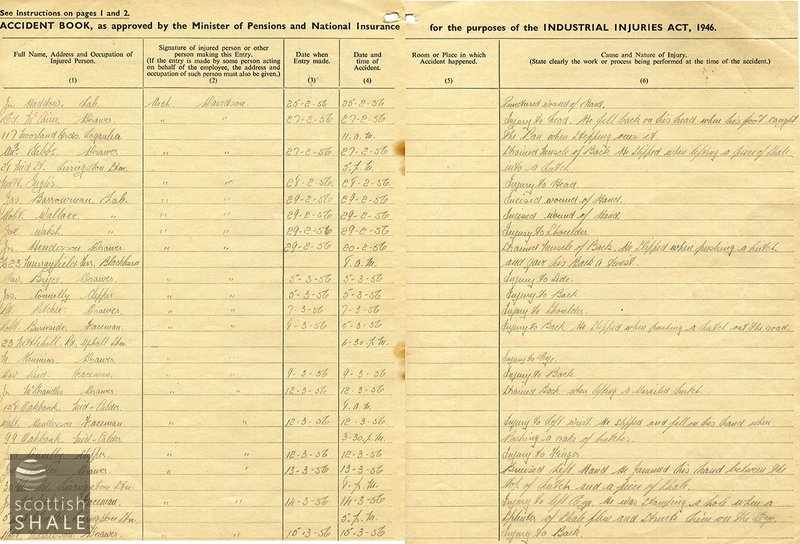 See Instructions on pages 1 and 2.
ACCIDENT BOOK, as approved by the Minister of Pensions and National Insurance for the purposes of the INDUSTRIAL INJURIES ACT, 1946.
Full Name, Address and Occupation of Injured Person.
(1)
Signature of injured person or other person making this Entry.
(If the entry is made by some person acting on behalf of the employee, the address and occupation of such person must also be given.)
(2)
Date when Entry made.
(3)
Date and time of Accident.
(4)
Room or Place in which Accident happened.
(5)
Cause and Nature of Injury.
(State clearly the work or process being performed at the time of the accident.)
(6)
Jn Haddow, Lab. Arch Davidson 25-2-56 25-2-56 Punctured wound of Hand.
Drawer " " 27-2-56 27-2-56 Injury to head. He fell back on his head when his foot caught
117 Loganlea 11 a.m. the when stepping over it
Gibbs Drawer " " 27-2-56 27-2-56 Strained muscle of Back. He slipped when lifting a piece of Shale
Livingston Stn. 5 p.m. into a hutch
Inglis " " 28-2-56 28-2-56 Injury to Head.
Jas Barrowman Lab. " " 29-2-56 29-2-56 Incised wound of Hand
Robt Wallace " " " 29-2-56 29-2-56 Incised wound of Hand
Joe Walsh " " " 29-2-56 29-2-56 Injury to Shoulder
Jn Henderson Drawer " " 29-2-56 Strained muscle of Back. He slipped when pushing a hutch
23 Murrayfield Terr. Blackburn 8 a.m. and gave his back a twist.
Bryce Drawer " " 5-3-56 5-3-56 Injury to Side.
Jas Connelly Clipper " " 5-3-56 5-3-56 Injury to Back
Ritchie Drawer " " 7-3-56 7-3-56 Injury to Shoulder.
Robt Burnside Faceman " " 5-3-56 Injury to Back. He slipped when pushing a hutch out the road.
23 Uphall Stn 6-30 p.m.
Drawer Injury to Eye.
Dav. Reid Faceman " " 9-3-56 9-3-56 Injury to Back
Jn McCrandles Drawer " " 12-3-56 12-3-56 Strained Back when lifting a derailed hutch.
Oakbank Mid-Calder 9 a.m.
Walt Henderson Faceman " " 12-3-56 12-3-56 Injury to left wrist. He slipped and fell on his hand when
99 Oakbank Mid-Calder. 3-30 p.m. pushing a rake of hutches.
Connelly Clipper " " 12-3-56 12-3-56 Injury to Finger
Drawer " " 13-3-56 13-3-56 Bruised left Hand He jammed his hand between the
Livingston Stn. 4 p.m. top of hutch and a piece of Shale.
Faceman " " 14-3-56 14-3-56 Injury to left Eye. He was stemming a hole when a
Livingston Stn. 5 p.m. splinter of Shale flew and struck him on the Eye.
Drawer " " 15-3-56 15-3-56 Injury to Back
scottish
SHALE